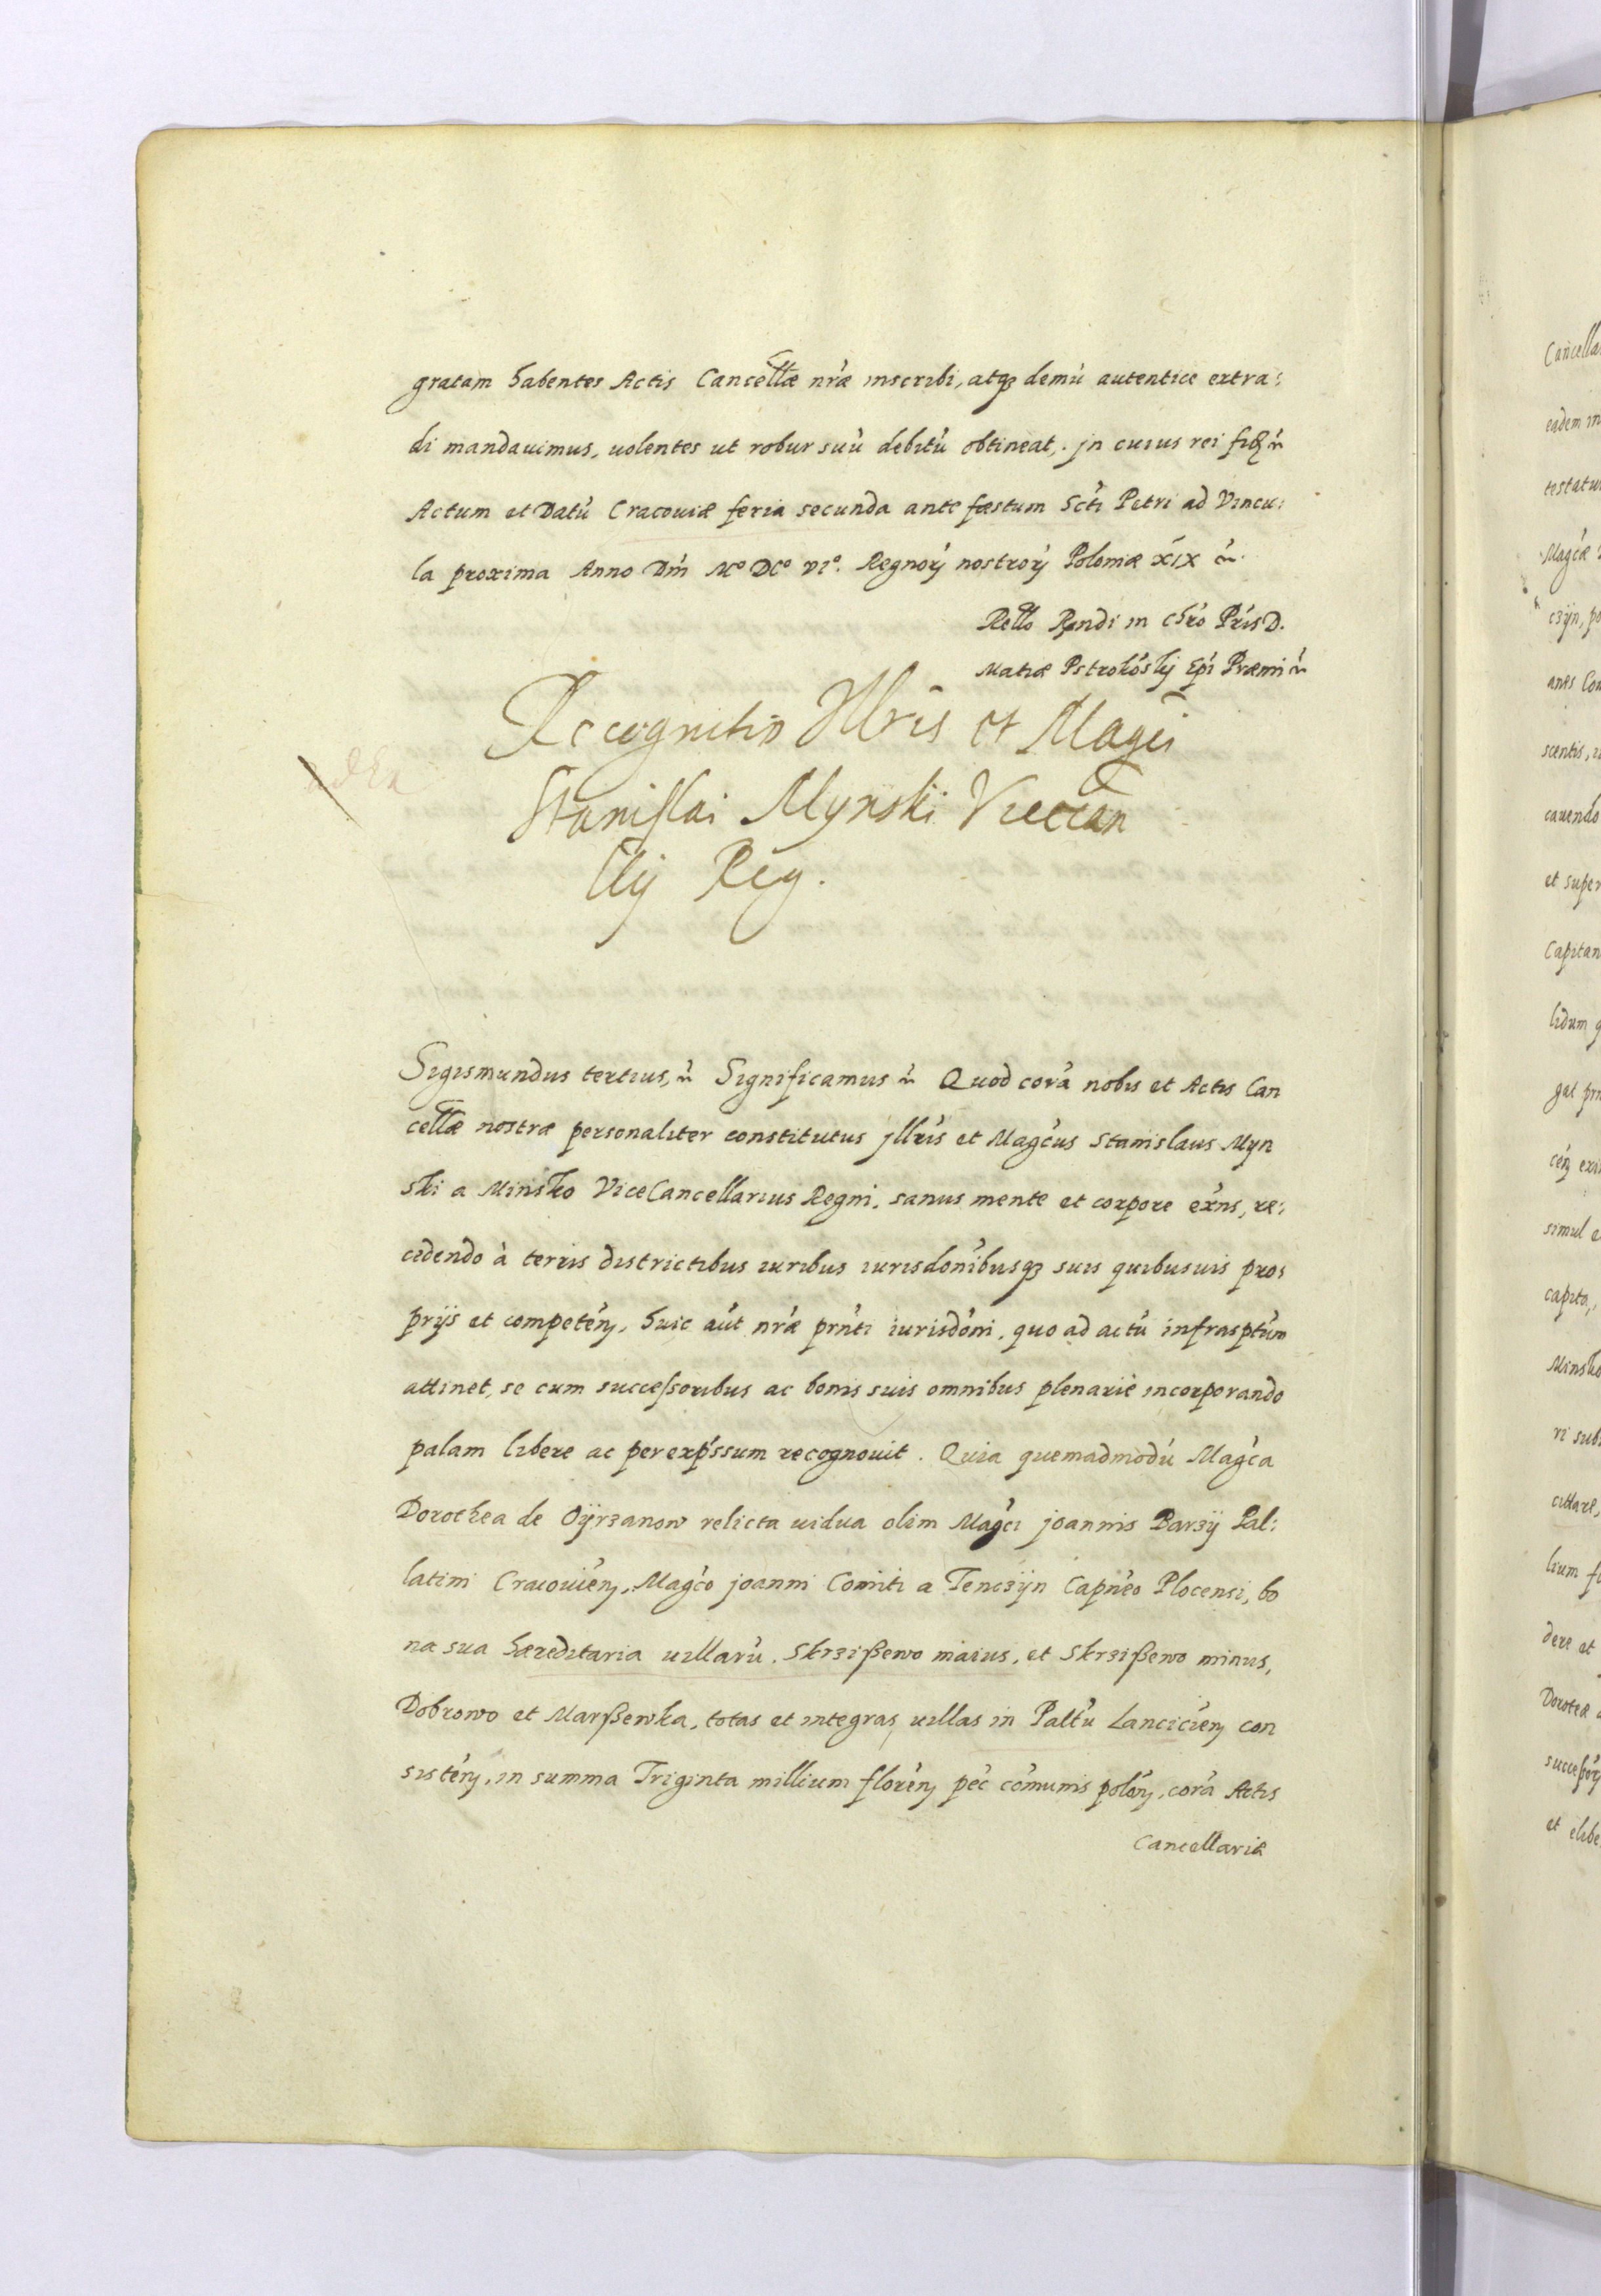 gratam habentes Actis Cancellæ nr̃æ inscribi, atq3 demũ autentice extra:
di mandavimus, uolentes ut robur suũ debitũ obtineat,. jn cuius rei fid
Actum et Datũ Cracoviæ feria secunda ante fæstum Scti Petri ad Vincu:
la proxima Anno Dni Mo DCo VIo. Regnorũ nostrorũ Poloniæ XIX
Rello Rendi in Chro Pris D.
Matiæ Pstrokoskij Epi Præmi
Recognitio Illris et Magci
Stanislai Mynski Vicecan
cllij Reg.
Sigismundus tertius, Significamus Quod corã nobis et Actis Can
cellæ nostræ personaliter constitutus jllris et Magcus Stanislaus Myn
ski a Minsko ViceCancellarius Regni. sanus mente et corpore exns, re:
cedendo à terris districtibus iuribus iurisdonibusq3 suis quibusuis pro:
prijs et competen, huic aut nræ prnti iurisdoni, quo ad actũ infrasptum
attinet, se cum successoribus ac bonis suis omnibus plenariè incorporando
palam libere ac per expssum recognouit. Quia quemadmodũ Magca
Dorothea de Oÿrzanow relicta uidua olim Magci joannis Barzij Pal:
latini Cracouien, Magco joanni Comiti a Tenczijn Capneo Plocensi, bo
na sua hæreditaria uillarũ. Skrzißewo maius, et Skrzißewo minus,
Dobrowo et Marßewka, totas et integras uillas in Paltũ Lancicien con
sisten, in summa Triginta millium floren pec comunis polon, corã Actis
Cancellariæ